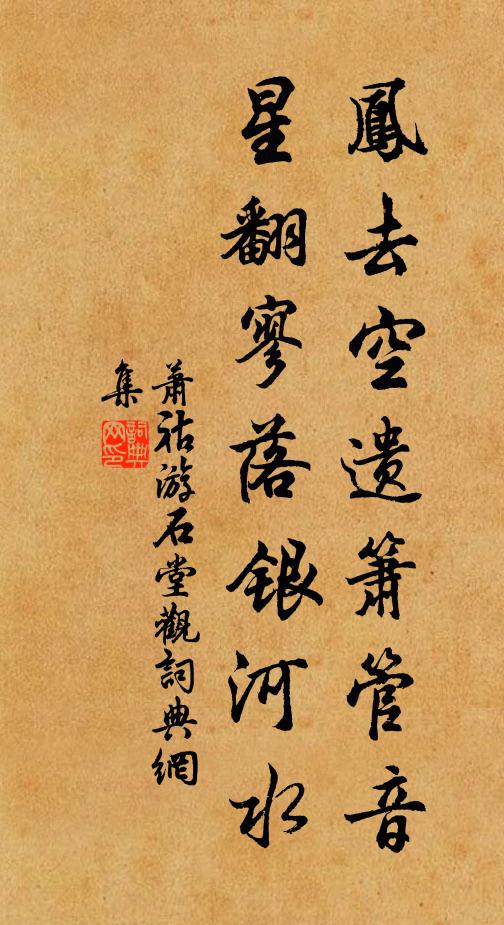 鳳去空遺簫管音
星翻寥落銀河水
蕭祜游石堂觀詞典網
集
詞典
网印